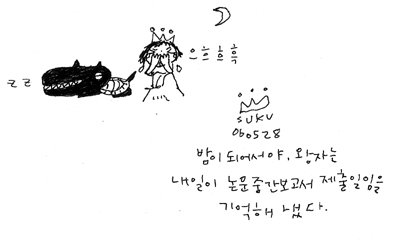 z z
으흐흐흑
SUKU
060528
밤이 되어서야, 왕자는
내일이 논문중간보고서 제출일임을
기억해 냈다.